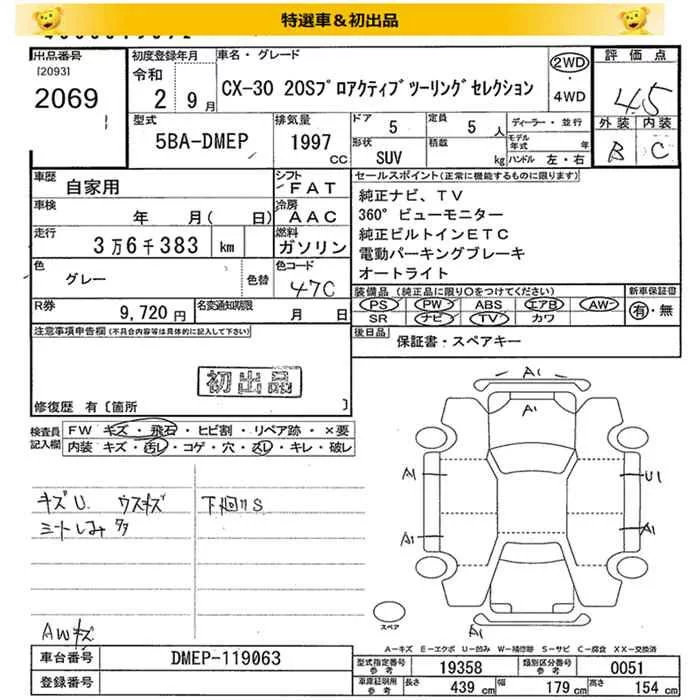 特選車＆初出品
出品番号
[2093]
2069
初度登録年月
令和
2年 9月
車名・グレード
CX-30 20Sプロアクティブツーリングセレクション
2WD
・
4WD
評価点
4.5
外装 内装
B C
型式
5BA-DMEP
排気量
1997
CC
ドア
5
定員
5人
形状
SUV
積載
kg
ディーラー・並行
モデル年式 年
ハンドル 左・右
車歴
自家用
シフト
FAT
車検
年 月( 日)
冷房
AAC
走行
3万6千383 km
燃料
ガソリン
色
グレー
色替
色コード
47C
R券
9,720円
名変通知期限
月 日
セールスポイント(正常に機能するものに限ります)
純正ナビ、TV
360°ビューモニター
純正ビルトインETC
電動パーキングブレーキ
オートライト
装備品(純正品に限り○をつけてください)
新車保証書
PS PW ABS エアB AW
SR ナビ TV カワ
有・無
後日品
保証書・スペアキー
注意事項申告欄(不具合内容等は具体的に記入して下さい)
初出品
修復歴 有[箇所 ]
検査員記入欄
FW キズ・飛石・ヒビ割・リペア跡・×要
内装 キズ・汚レ・コゲ・穴・スレ・キレ・破レ
キズU. ウスキズ
下廻りS
AWキズ
A1
A1
A1
U1
A1
A1
A1
スペア
A-キズ E-エクボ U-凹み W-補修跡 S-サビ C-腐食 XX-交換済
車台番号
DMEP-119063
登録番号
型式指定番号参考
19358
類別区分番号参考
0051
車庫証明用参考
長さ 439 cm
幅 179 cm
高さ 154 cm